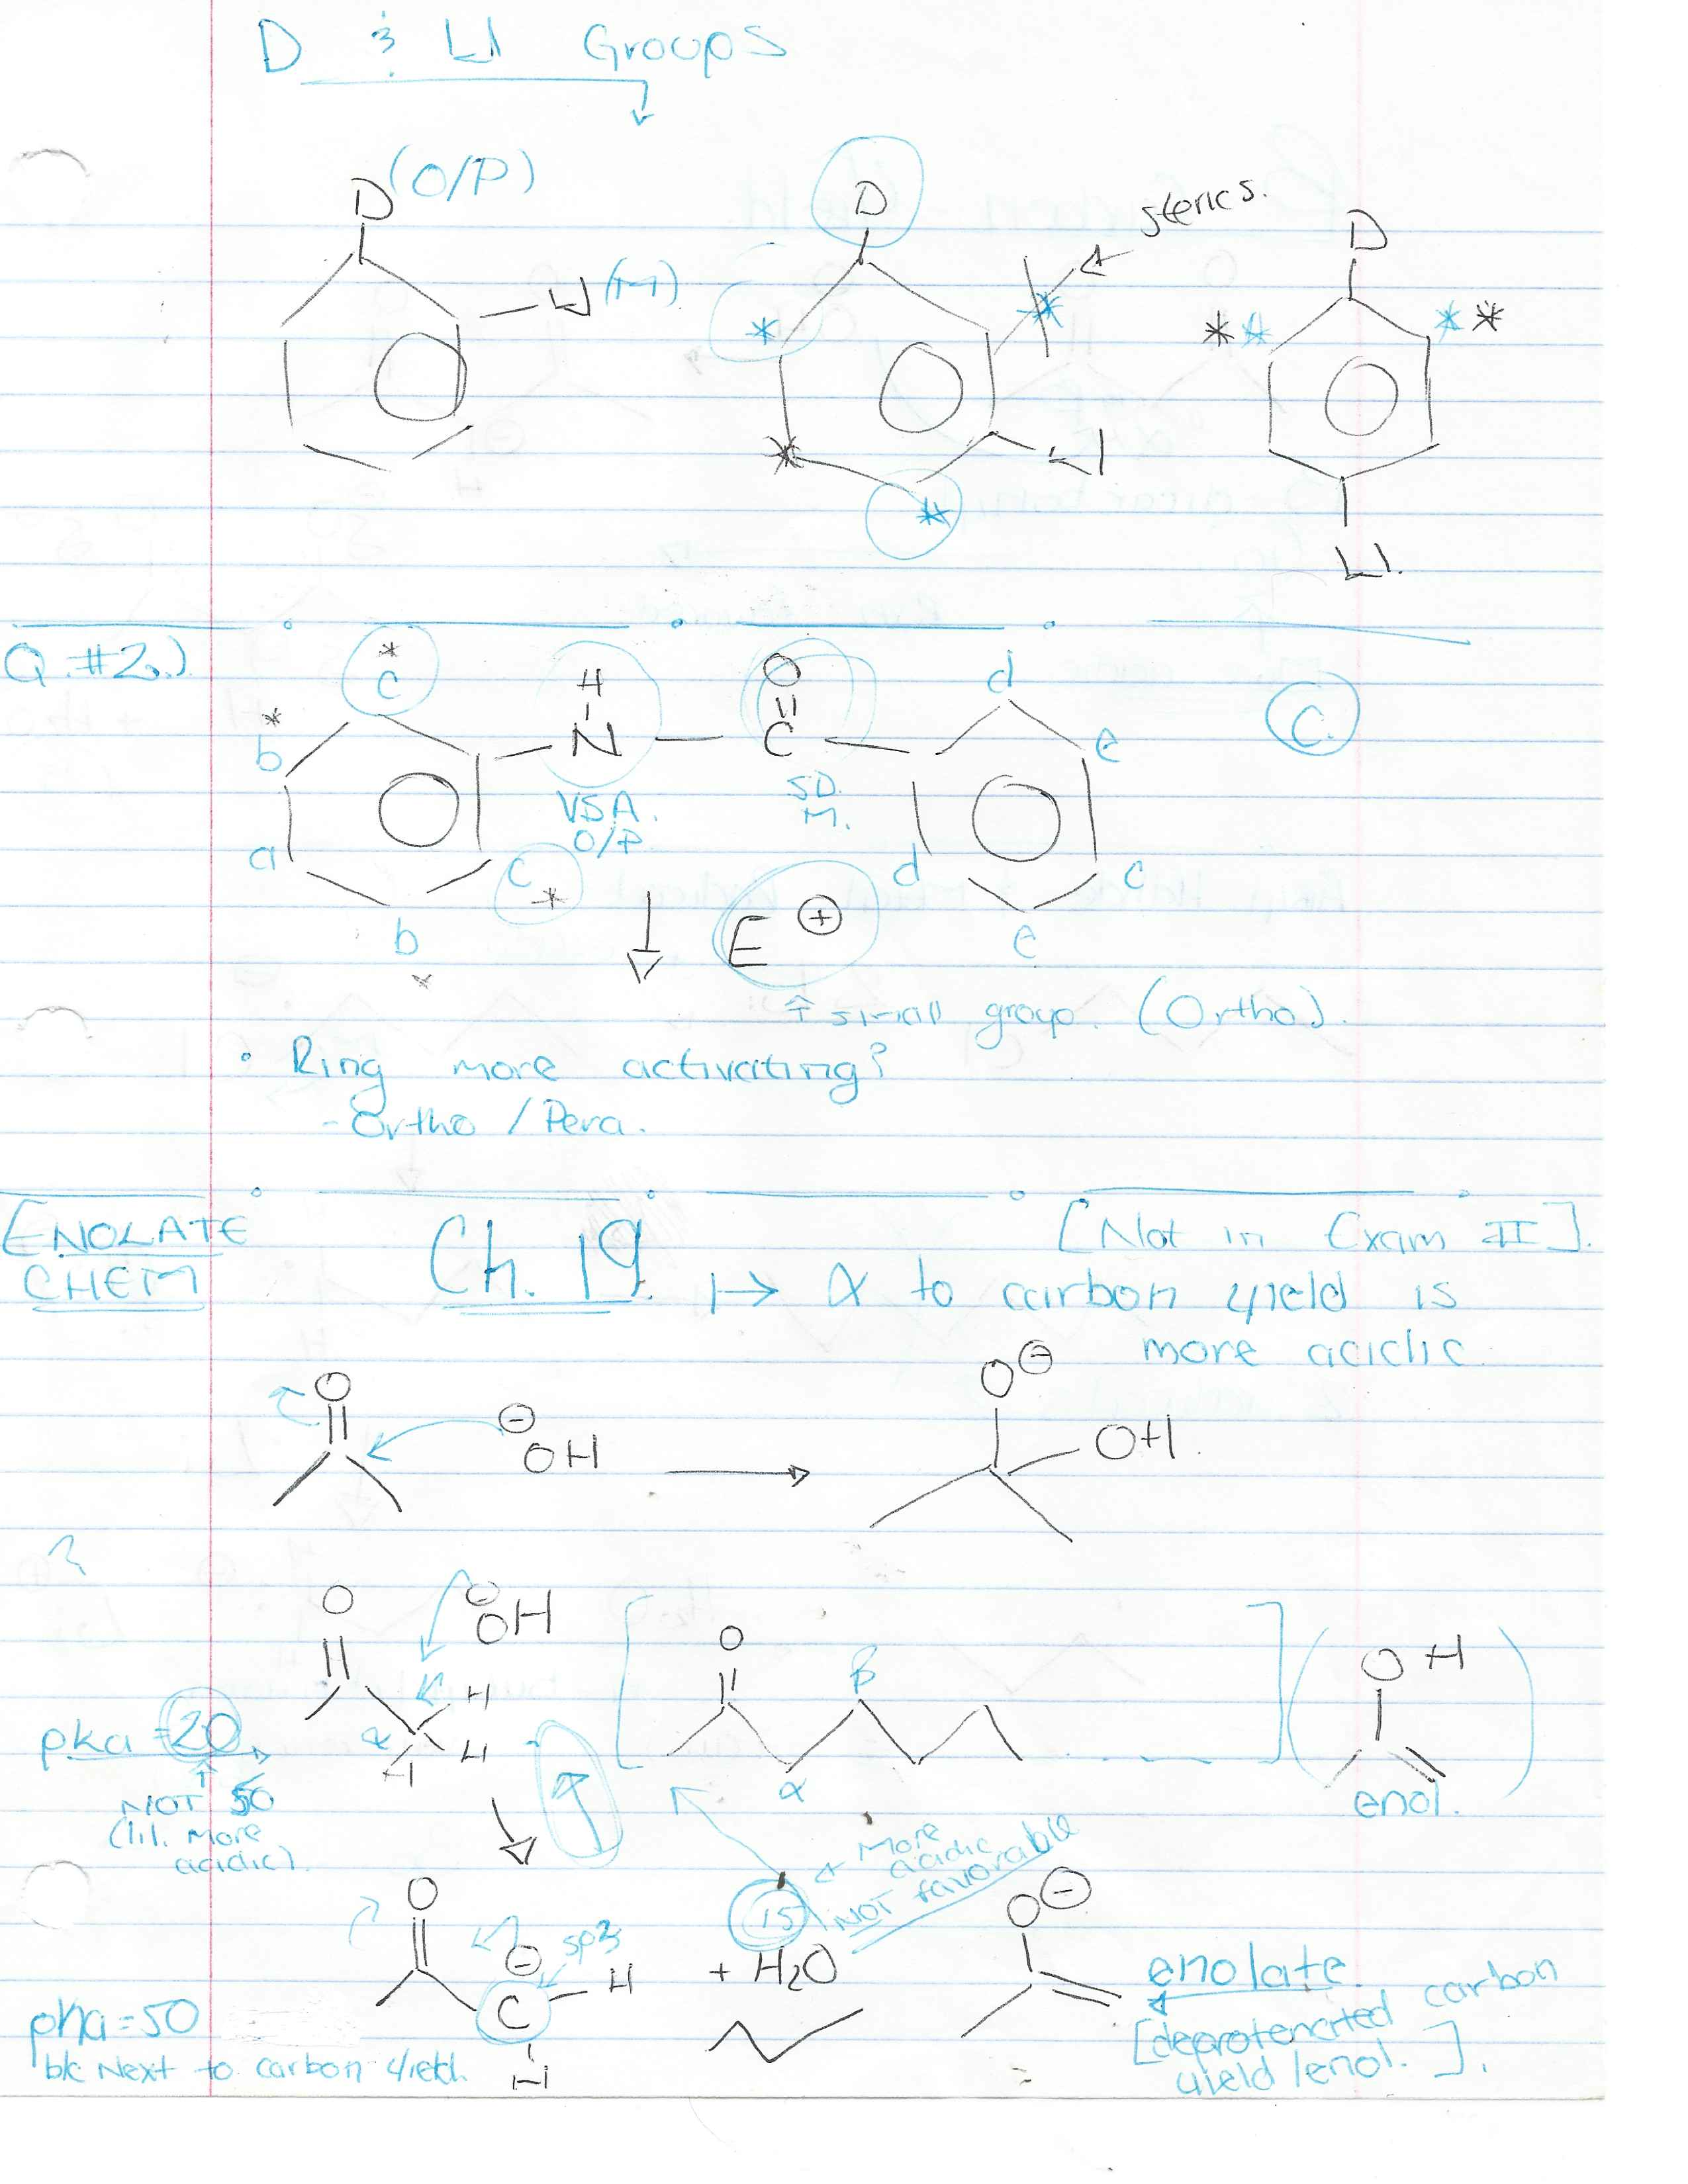 D & W Groups
D (O/P)
W (M)
D
sterics.
W
D
W.
Q. #2.)
* c
* b
a
b
c *
H
N
VSA.
O/P
O
C
SD.
M.
d
e
d
c
e
C.
E ⊕
↑ small group. (Ortho).
• Ring more activating?
- Ortho / Pera.
ENOLATE
CHEM
Ch. 19.
[Not in Exam II].
↦ α to carbon yield is
more acidic
O
⊖
OH
O⊖
OH.
?
O
⊖
OH
H
α
H
H
pka = 20
NOT 50
(lil. more
acidic).
O
β
α
O H
enol.
More
acidic
NOT favorable
15
O
⊖
sp3
C
H
H
+ H2O
O⊖
enolate.
[deprotenated carbon
yield / enol. ].
pka = 50
b/c Next to carbon yield.